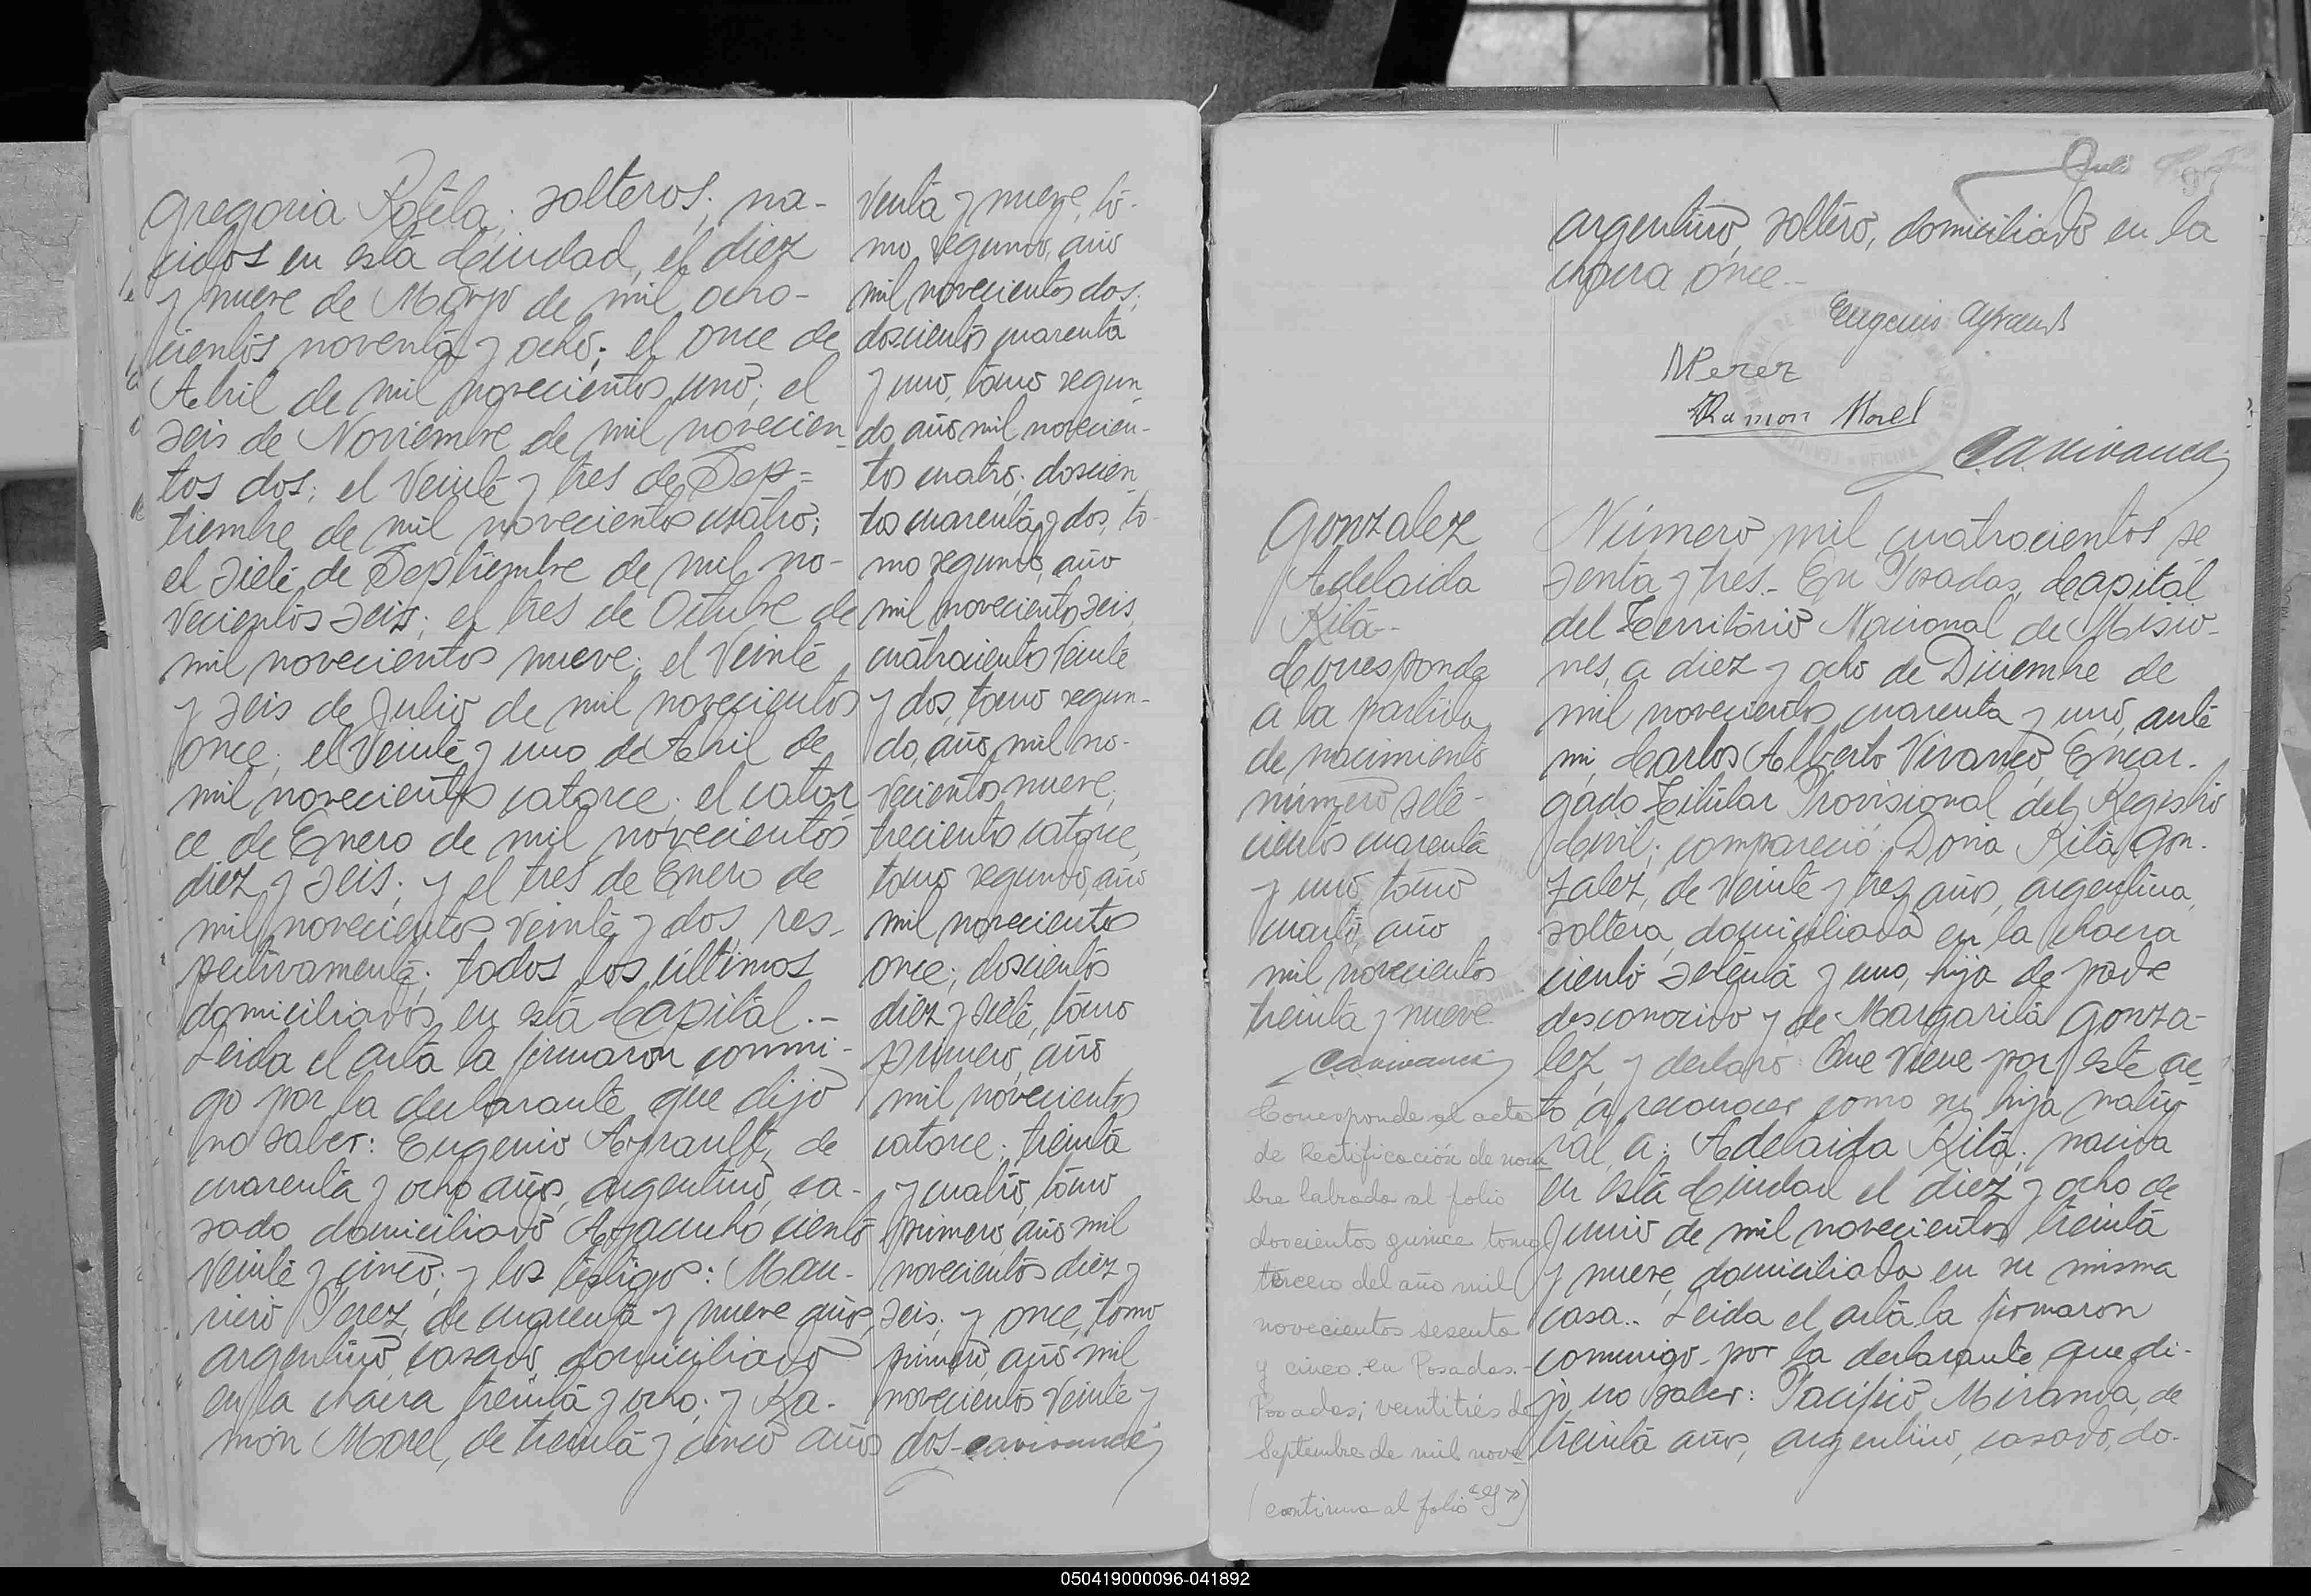 Gregoria Rotela; solteros; na-
cidos en esta Ciudad, el diez
y nueve de Marzo de mil ocho-
cientos noventa y ocho; el once de
Abril de mil novecientos uno; el
seis de Noviembre de mil novecien-
tos dos; el veinte y tres de Sep=
tiembre de mil novecientos cuatro;
el siete de Septiembre de mil no-
vecientos seis; el tres de Octubre de
mil novecientos nueve; el veinte
y seis de Julio de mil novecientos
once; el veinte y uno de Abril de
mil novecientos catorce; el cator
ce de Enero de mil novecientos
diez y seis; y el tres de Enero de
mil novecientos veinte y dos res-
pectivamente; todos los últimos
domiciliados en esta Capital.-
Leida el acta la firmaron conmi-
go por la declarante que dijo
no saber: Eugenio Ayrault, de
cuarenta y ocho años, argentino, ca-
sado domiciliado Ayacucho ciento
veinte y cinco; y los testigos: Mau-
ricio Perez, de cuarenta y nueve años,
argentino, casado, domiciliado
en la chacra treinta y ocho; y Ra-
món Morel, de treinta y cinco años
venta y nueve, to-
mo segundo, año
mil novecientos dos;
doscientos cuarenta
y uno, tomo segun
do año mil novecien-
tos cuatro; doscien
tos cuarenta y dos, to-
mo segundo, año
mil novecientos seis,
cuatrocientos veinte
y dos, tomo segun-
do, año mil no-
vecientos nueve;
trecientos catorce,
tomo segundo, año
mil novecientos
once; doscientos
diez y siete, tomo
primero, año
mil novecientos
catorce; treinta
y cuatro, tomo
primero, año mil
novecientos diez y
seis; y once, tomo
primero, año mil
novecientos veinte y
dos- cavivanco
argentino, soltero, domiciliado en la
chacra once.-
Eugenio Ayrault
MPerez
Ramon Morel
cavivanco
Gonzalez
Adelaida
Rita-
Corresponde
a la partida
de nacimiento
número sete-
cientos cuarenta
y uno, tomo
cuarto, año
mil novecientos
treinta y nueve
cavivanco
Corresponde al acta
de Rectificación de nom
bre labrada al folio
doscientos quince tomo
tercero del año mil
novecientos sesenta
y cinco.en Posadas.-
Posadas; veintitrés de
Septiembre de mil nove
(continua al folio
Número mil cuatrocientos se
senta y tres.- En Posadas, Capital
del Territorio Nacional de Misio-
nes, a diez y ocho de Diciembre de
mil novecientos cuarenta y uno, ante
mi, Carlos Alberto Vivanco, Encar-
gado Titular Provisional del Registro
Civil; compareció: Doña Rita Gon-
zalez, de veinte y tres años, argentina,
soltera, domiciliada en la chacra
ciento setenta y uno, hija de padre
desconocido y de Margarita Gonza-
lez, y declaró: Que viene por este ac-
to a reconocer como su hija natu-
ral, a: Adelaida Rita; nacida
en esta Ciudad el diez y ocho de
Junio de mil novecientos treinta
y nueve, domiciliada en su misma
casa.. Leida el acta la firmaron
conmigo por la declarante que di-
jo no saber: Pacifico Miranda, de
treinta años, argentino, casado, do-
050419000096-041892